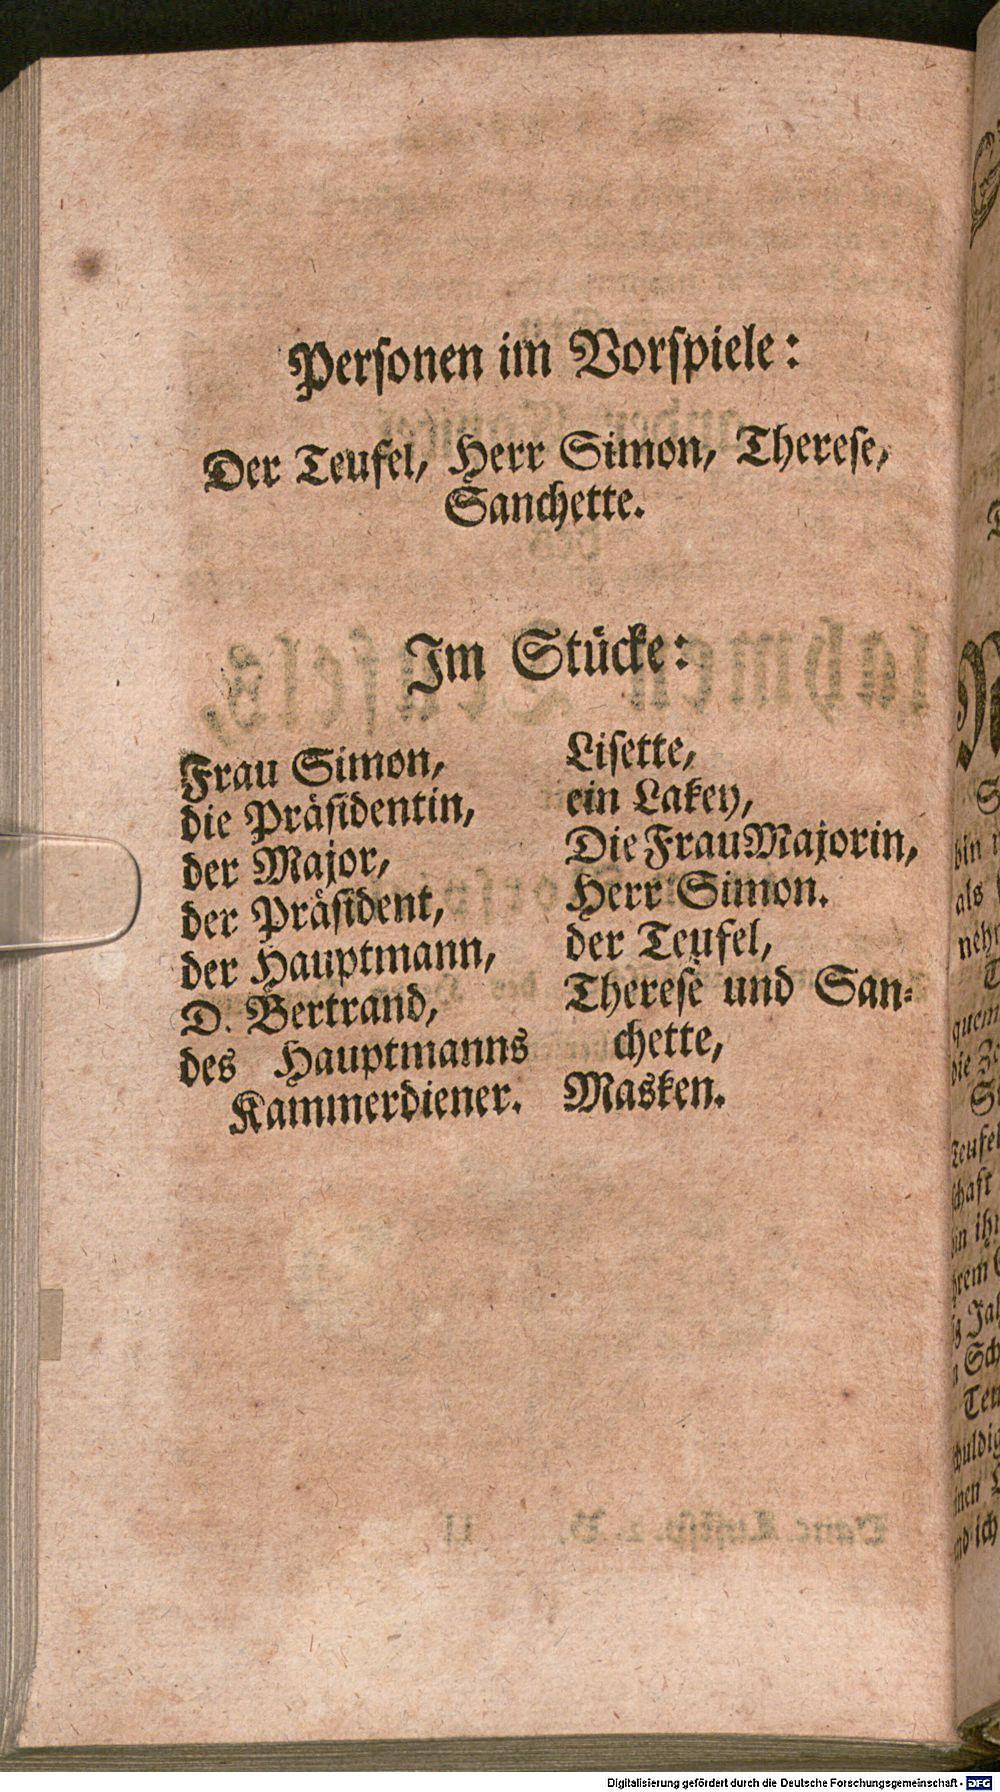 Personen im Vorspiele:
Der Teufel, Herr Simon, Therese,
Sanchette.
Im Stücke:
Frau Simon,
die Präsidentin,
der Major,
der Präsident,
der Hauptmann,
D. Bertrand,
des Hauptmanns
Kammerdiener.
Lisette,
ein Lakey,
Die Frau Majorin,
Herr Simon.
der Teufel,
Therese und San-
chette,
Masken.
bin
als
nehm
quem
die
Teufel
schaft
Digitalisierung gefördert durch die Deutsche Forschungsgemeinschaft - DFG